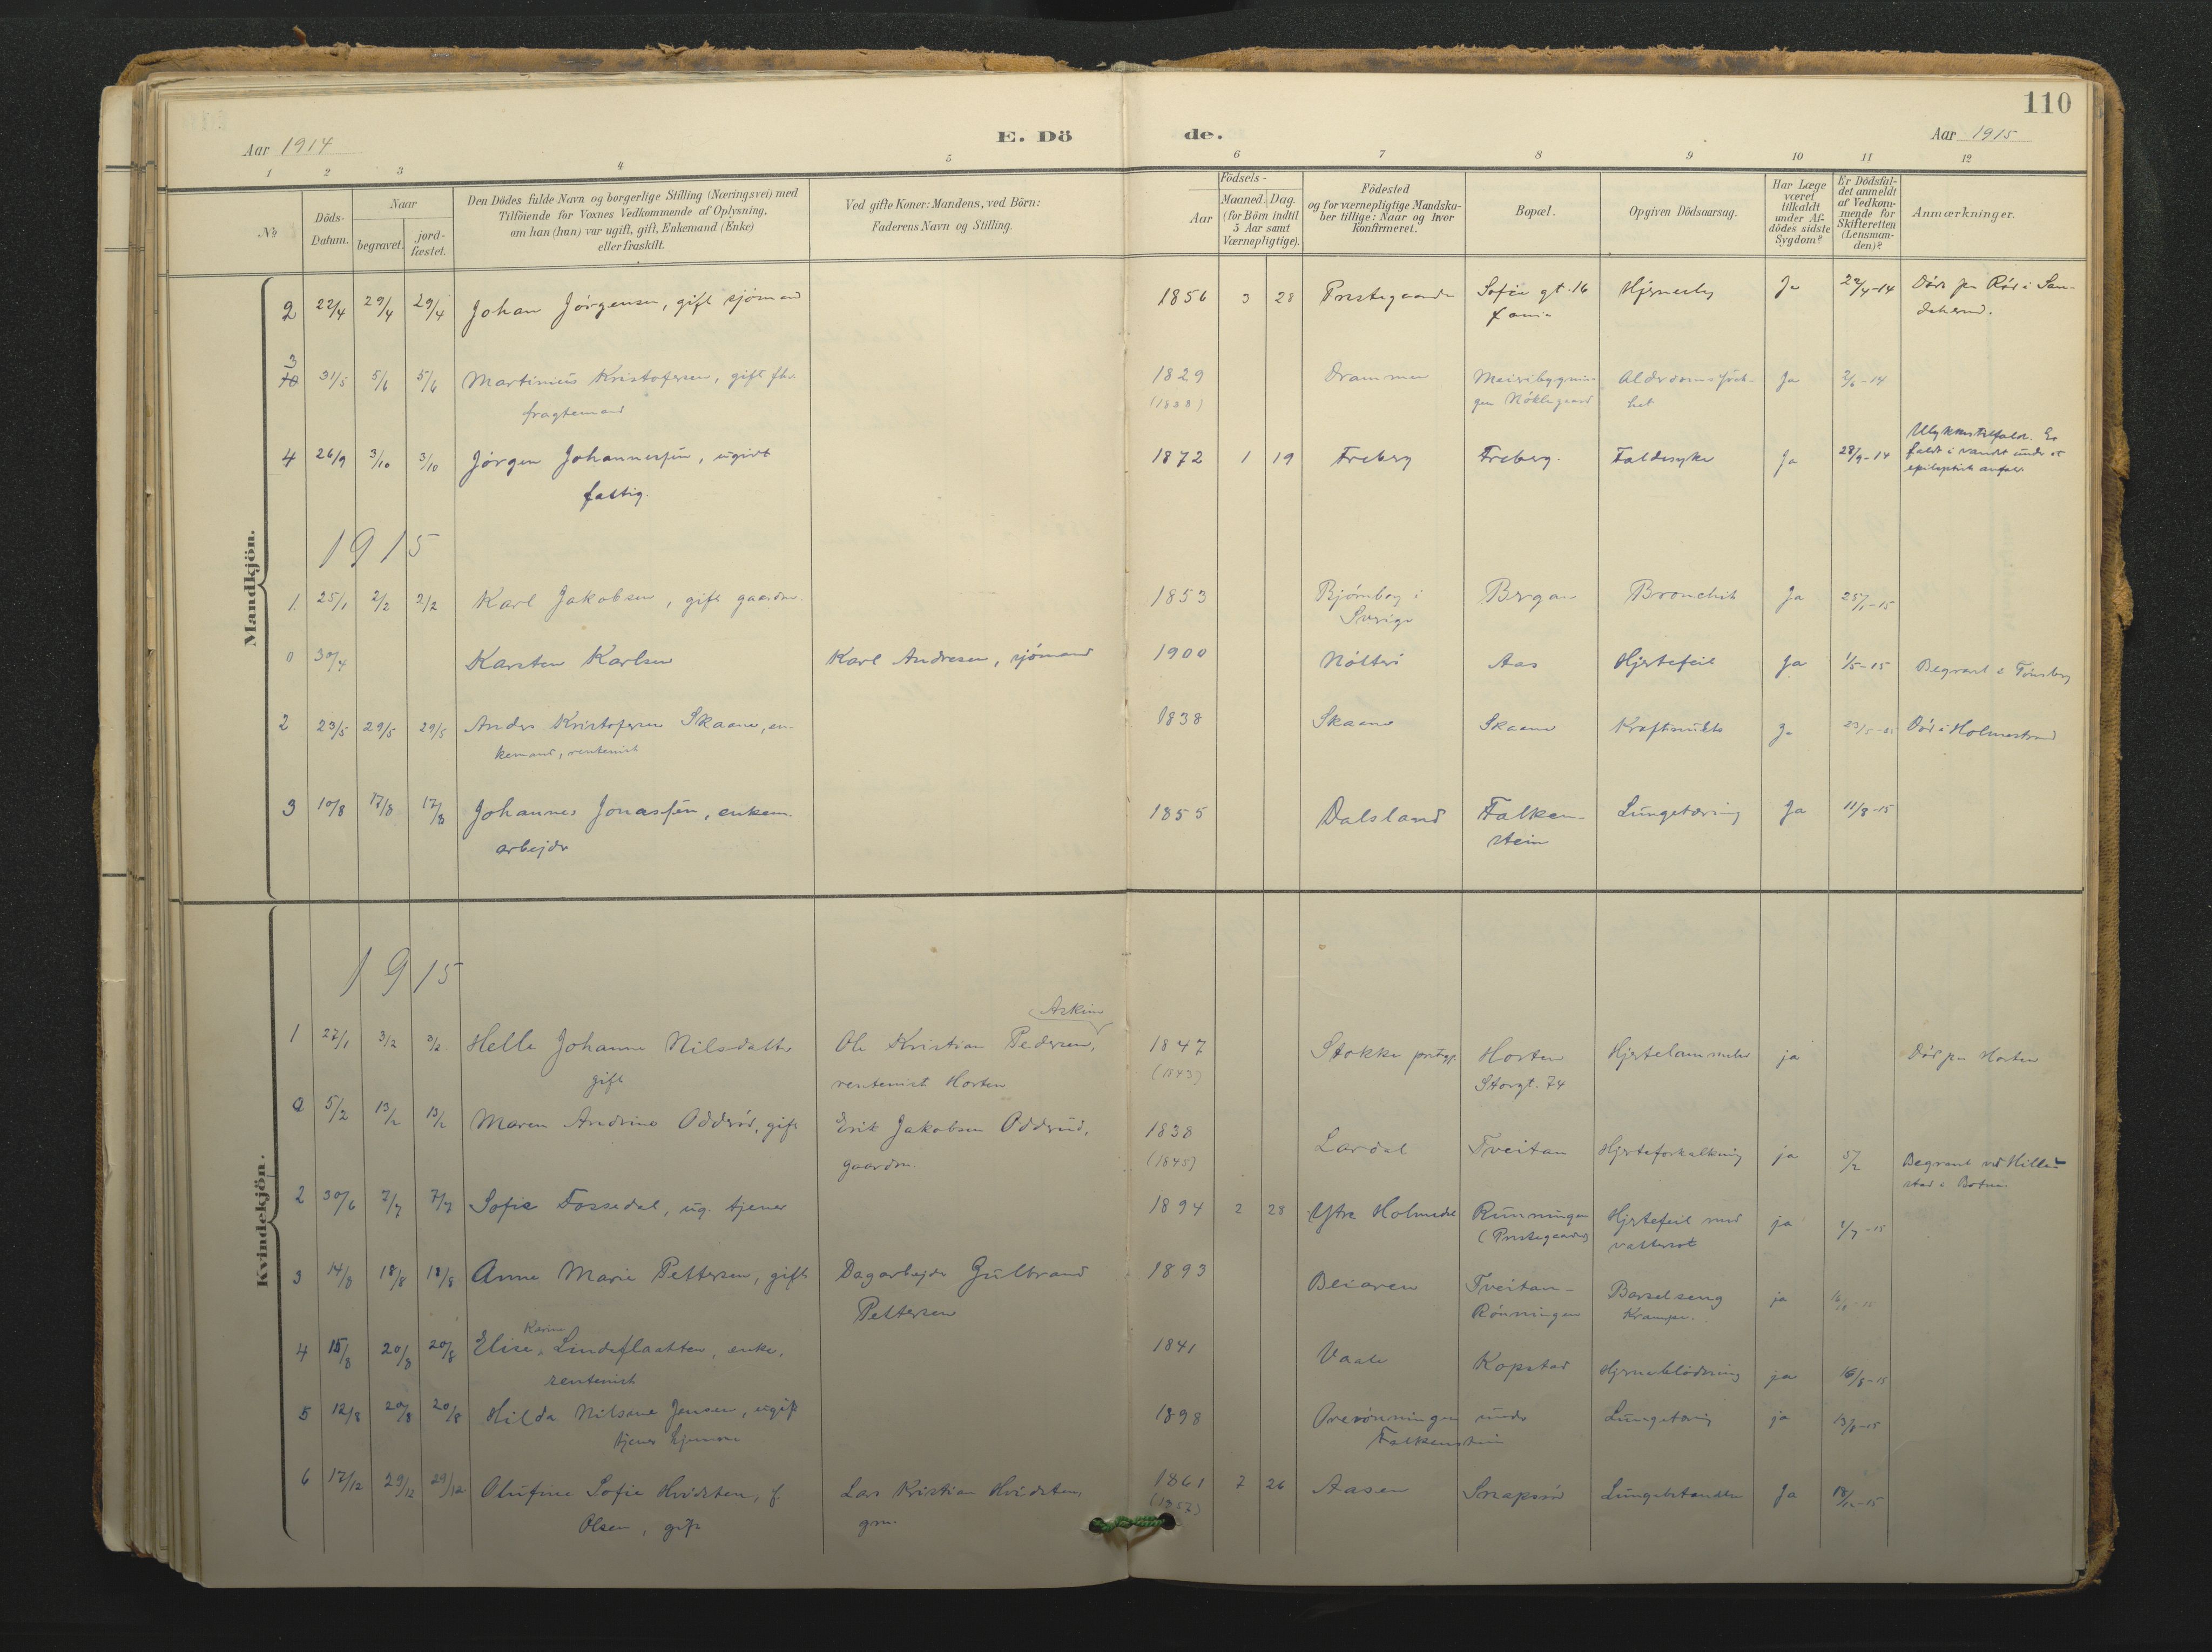 110
Aar 1914
E. Dö
de.
Aar 1915
1 2 3 4 5 6 7 8 9 10 11 12
№
Döds-Datum.
Naar
begravet.
jord-fæstet.
Den Dödes fulde Navn og borgerlige Stilling (Næringsvei) med
Tilföiende for Voxnes Vedkommende af Oplysning,
om han (hun) var ugift, gift, Enkemand (Enke)
eller fraskilt.
Ved gifte Koner: Mandens, ved Börn:
Faderens Navn og Stilling.
Födsels-
Aar
Maaned. Dag.
(for Börn indtil
5 Aar samt
Værnepligtige).
Födested
og for værnepligtige Mandska-
ber tillige: Naar og hvor
Konfirmeret.
Bopæl.
Opgiven Dödsaarsag.
Har Læge
været
tilkaldt
under Af-
dödes sidste
Sygdom?
Er Dödsfal-
det anmeldt
af Vedkom-
mende for
Skifteretten
(Lensman-
den)?
Anmærkninger.
Mandkjön.
2 22/4 29/4 29/4 Johan Jörgensen, gift sjömand 1856 3 28 Prestegaarden Sofie gt. 16 Ja 22/4-14
3 10 31/5 5/6 5/6 Martinius Kristofersen, gift fhv. 1829 Drammen Ja 2/6-14
fragtemand (1833)
4 26/9 3/10 3/10 Jörgen Johannessen, ugivt 1872 1 19 Freberg Freberg. Faldesyke Ja 28/9-14 Ulykkestilfælde. Er
fattig. faldt i vandet under et
epileptisk anfald.
1915
1. 25/1 2/2 2/2 Karl Jakobsen, gift gaardm. 1853 Bjömborg i Bergan Bronchit Ja 25/1-15
Sverige
0 30/4 Karsten Karlsen Karl Andresen, sjömand 1900 Nötterö Aas Hjertefeil Ja 1/5-15 Begravet i Tönsberg
2 23/5 29/5 29/5 Anders Kristofersen Skaane, en- 1838 Skaane Skaane Ja 23/5-15 Död i Holmestrand
kemand, rentenist
3 10/8 17/8 17/8 Johannes Jonassen, enkem. 1855 Dalsland Falken- Lungetæring Ja 11/8-15
arbejder stein
Kvindekjön.
1915
Askim
1 27/1 3/2 3/2 Helle Johanne Nilsdatter Ole Kristian Pedersen, 1847 Stokke prstgj. Horten Hjertelammelse ja Död paa Horten
gift rentenist Horten (1843) Storgt. 74
0 5/2 13/2 13/2 Maren Andrine Oddröd, gift Erik Jakobsen Oddrud, 1838 Lardal Tveitan Hjerteforkalkning ja 5/2 Begravet ved Hille-
gaardm. (1845) stad i Botne.
2 30/6 7/7 7/7 Sofie Fossedal, ug. tjener 1894 2 28 Ytre Holmedal Runningen Hjertefeil med ja 1/7-15
(Prestegaarden) vattersot
3 14/8 18/8 18/8 Anne Marie Pettersen, gift Dagarbejder Gulbrand 1893 Beiaren Tveitan- Barselseng ja 16/8-15
Pettersen Rönningen Krampe.
Karine
4 15/8 20/8 20/8 Elise Lindeflaatten, enke, 1841 Vaale Kopstad Hjerneblödning ja 16/8-15
rentenist
5 12/8 20/8 20/8 Hilda Nilsine Jensen, ugift 1898 Orerönningen under Lungetæring ja 13/8-15
tjener Falkenstein
6 17/12 29/12 29/12 Olufine Sofie Hvidsten, f. Lars Kristian Hvidsten, 1861 7 26 Aasen Snapsröd Lungebetændelse Ja 18/12-15
Olsen, gift gm. (1857)